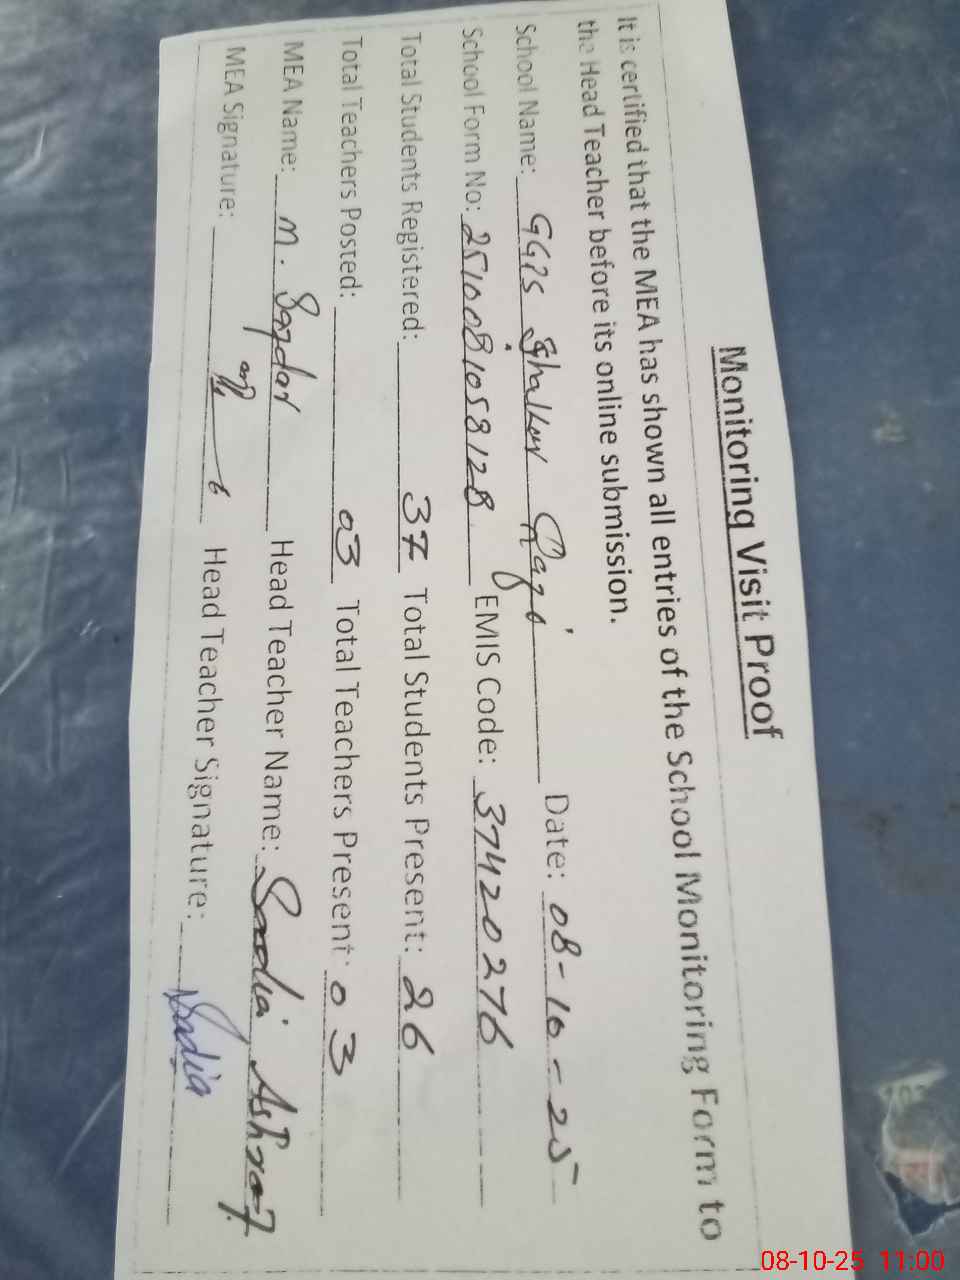 Monitoring Visit Proof
It is certified that the MEA has shown all entries of the School Monitoring Form to
the Head Teacher before its online submission.
School Name: GGPS Dhalkar Qazi Date: 08-10-25
School Form No: 2510081058128 EMIS Code: 37420276
Total Students Registered: 37 Total Students Present: 26
Total Teachers Posted: 03 Total Teachers Present: 03
MEA Name: M. Safdar Head Teacher Name: Sadia Ashraf
MEA Signature: Head Teacher Signature: Sadia
08-10-25 11:00